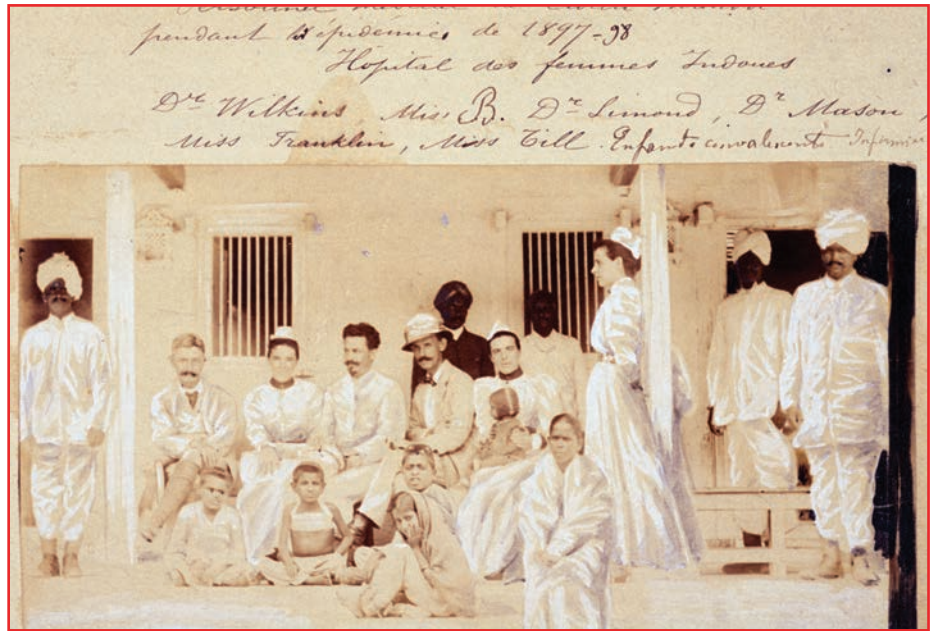 pendant l'épidémie de 1897-98
Hôpital des femmes Indoues
Dr Wilkins, Miss B. Dr Simond, Dr Mason,
Miss Franklin, Miss Till. Enfants convalescents